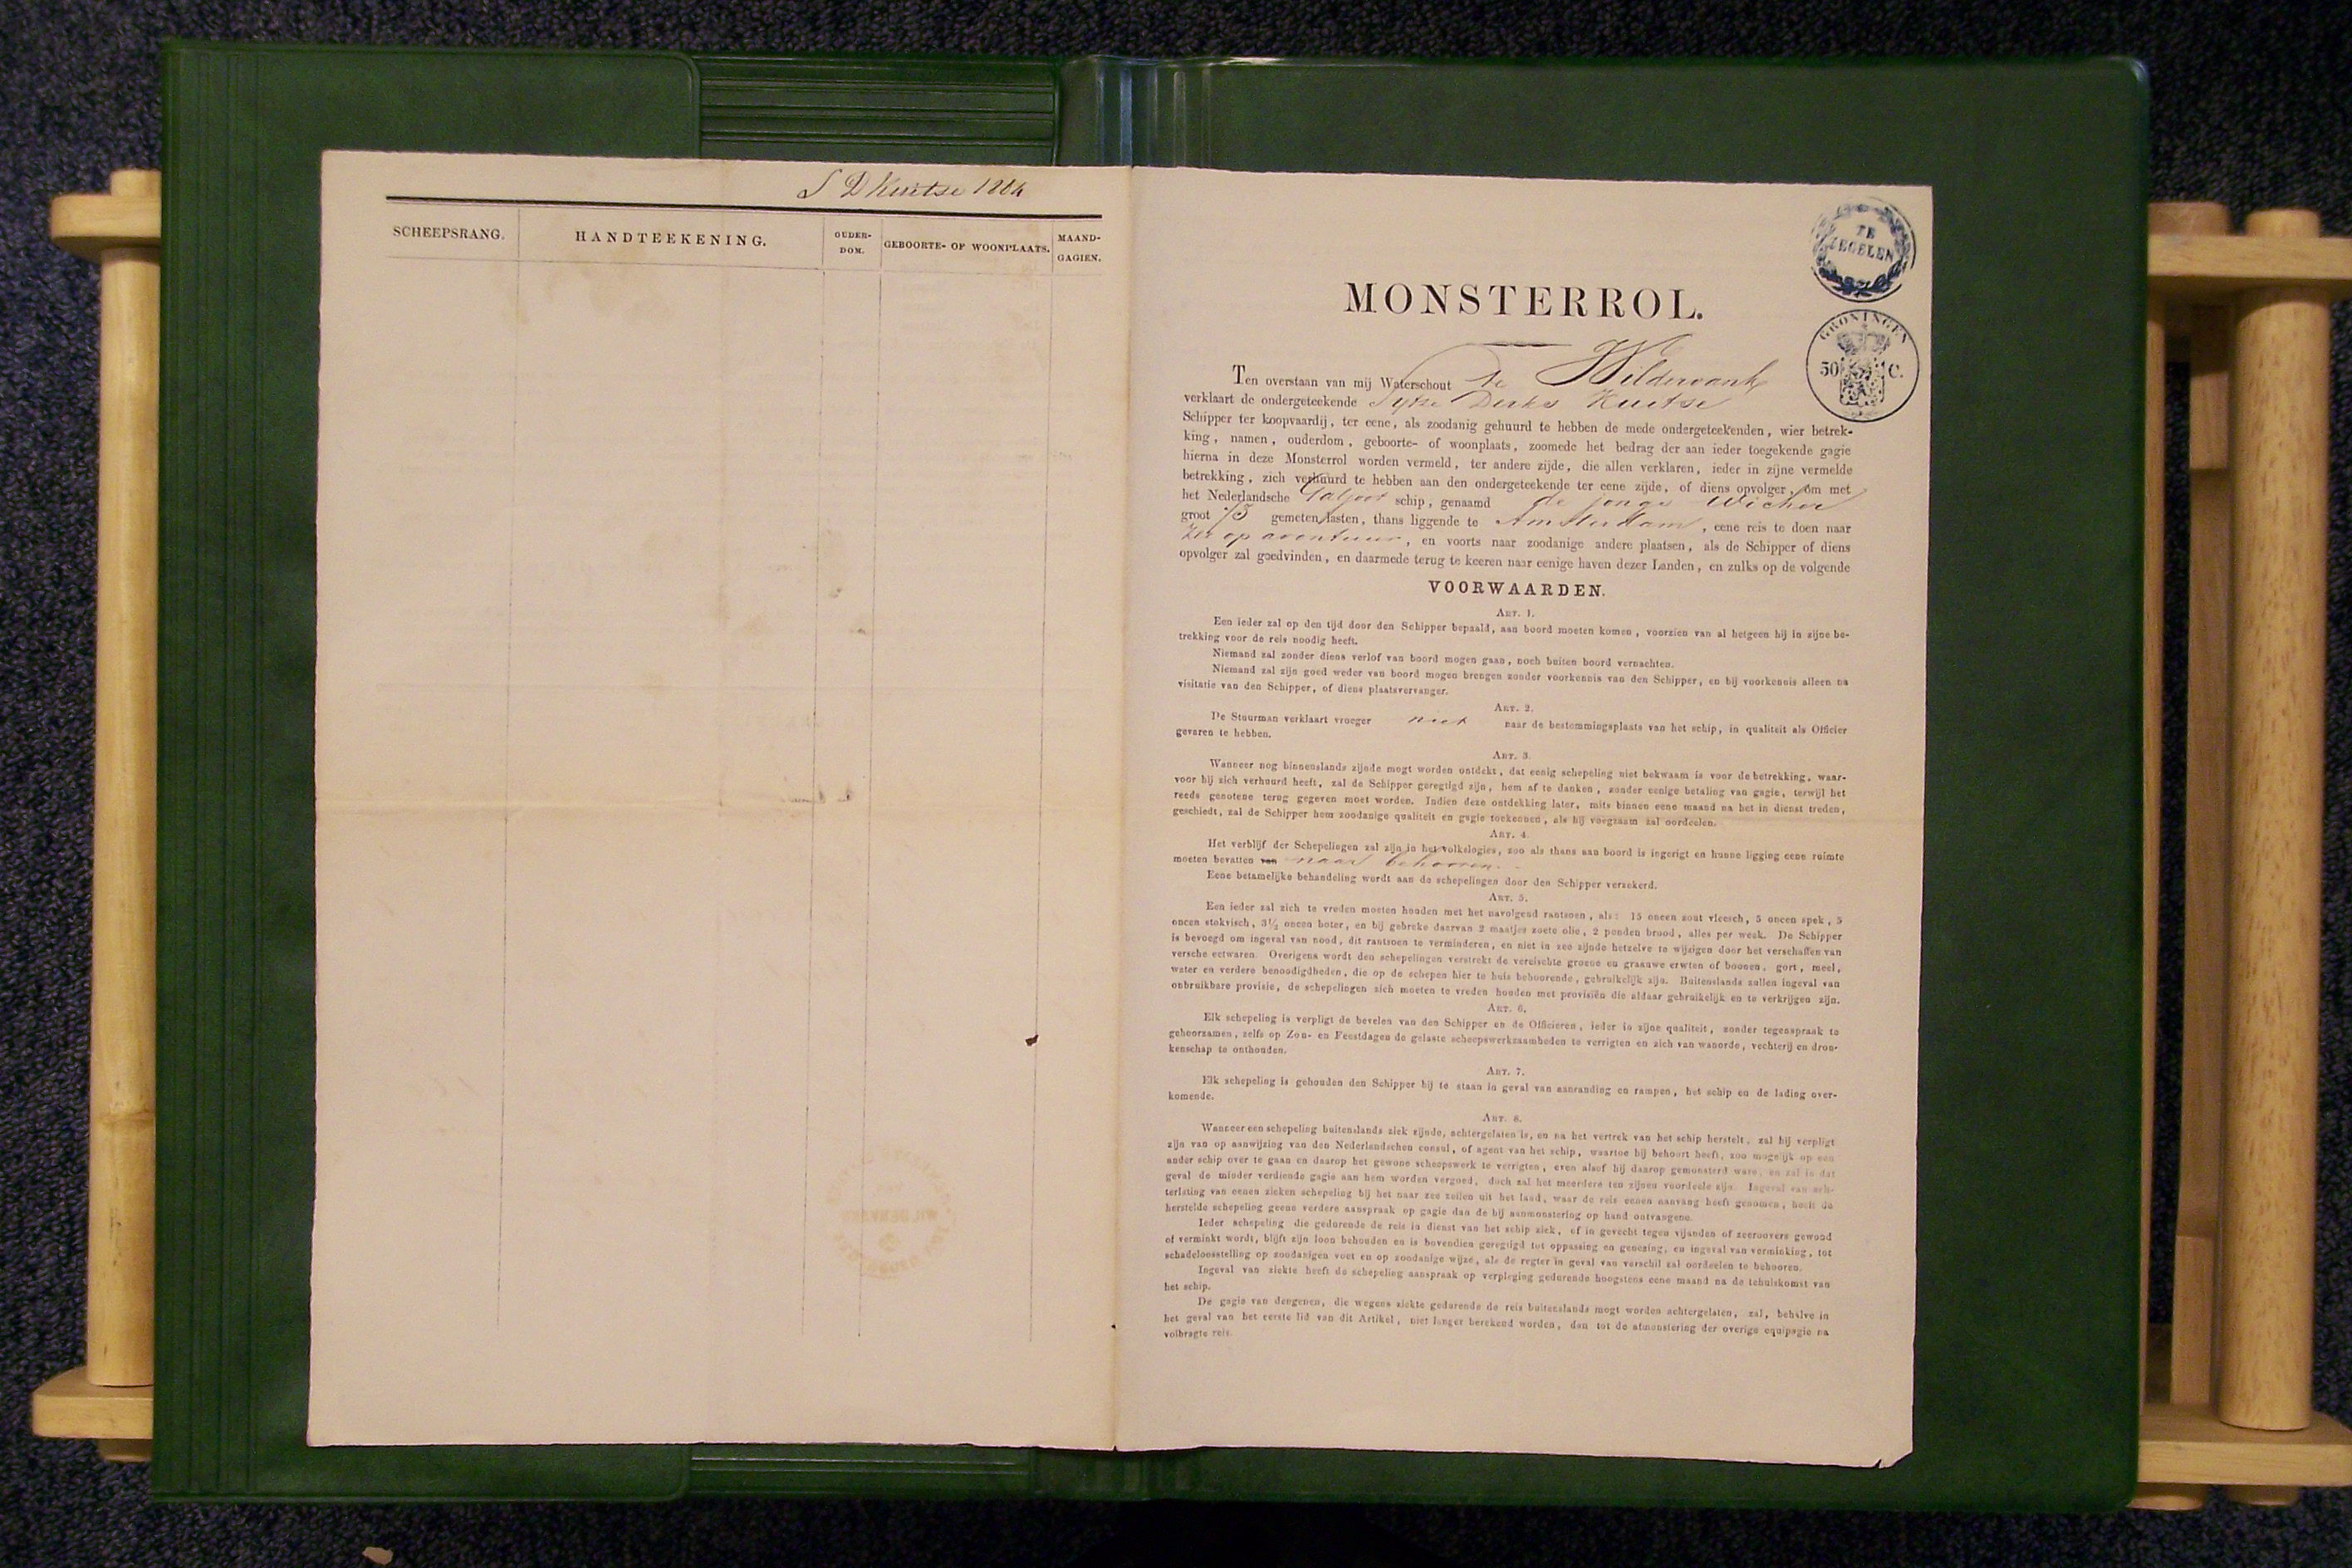 S D Kuitse 1884
SCHEEPSRANG.
HANDTEEKENING.
OUDER-
DOM.
GEBOORTE- OF WOONPLAATS.
MAAND-
GAGIEN.
TE
ZEGELEN
GRONINGEN
50 C.
MONSTERROL.
Ten overstaan van mij Waterschout te Wildervank
verklaart de ondergeteekende Sytse Derks Kuitse
Schipper ter koopvaardij, ter eene, als zoodanig gehuurd te hebben de mede ondergeteekenden, wier betrek-
king, namen, ouderdom, geboorte- of woonplaats, zoomede het bedrag der aan ieder toegekende gagie
hierna in deze Monsterrol worden vermeld, ter andere zijde, die allen verklaren, ieder in zijne vermelde
betrekking, zich verhuurd te hebben aan den ondergeteekende ter eene zijde, of diens opvolger, om met
het Nederlandsche Galjoot schip, genaamd de jonge Wicher
groot gemeten lasten, thans liggende te Amsterdam, eene reis te doen naar
Zee op avontuur, en voorts naar zoodanige andere plaatsen, als de Schipper of diens
opvolger zal goedvinden, en daarmede terug te keeren naar eenige haven dezer Landen, en zulks op de volgende
VOORWAARDEN.
ART. 1.
Een ieder zal op den tijd door den Schipper bepaald, aan boord moeten komen, voorzien van al hetgeen hij in zijne be-
trekking voor de reis noodig heeft.
Niemand zal zonder diens verlof van boord mogen gaan, noch buiten boord vernachten.
Niemand zal zijn goed weder van boord mogen brengen zonder voorkennis van den Schipper, en bij voorkennis alleen na
visitatie van den Schipper, of diens plaatsvervanger.
ART. 2.
De Stuurman verklaart vroeger niet naar de bestemmingsplaats van het schip, in qualiteit als Officier
gevaren te hebben.
ART. 3.
Wanneer nog binnenslands zijnde mogt worden ontdekt, dat eenig schepeling niet bekwaam is voor de betrekking, waar-
voor hij zich verhuurd heeft, zal de Schipper geregtigd zijn, hem af te danken, zonder eenige betaling van gagie, terwijl het
reeds genotene terug gegeven moet worden. Indien deze ontdekking later, mits binnen eene maand na het in dienst treden,
geschiedt, zal de Schipper hem zoodanige qualiteit en gagie toekennen, als hij voegzaam zal oordeelen.
ART. 4.
Het verblijf der Schepelingen zal zijn in het volkslogies, zoo als thans aan boord is ingerigt en hunne ligging eene ruimte
moeten bevatten van naar behooren.
Eene betamelijke behandeling wordt aan de schepelingen door den Schipper verzekerd.
ART. 5.
Een ieder zal zich te vreden moeten houden met het navolgend rantsoen, als: 15 oncen zout vleesch, 5 oncen spek, 5
oncen stokvisch, 3½ oncen boter, en bij gebreke daarvan 2 maatjes zoete olie, 2 ponden brood, alles per week. De Schipper
is bevoegd om ingeval van nood, dit rantsoen te verminderen, en niet in zee zijnde hetzelve te wijzigen door het verschaffen van
versche eetwaren. Overigens wordt den schepelingen verstrekt de vereischte groene en graauwe erwten of boonen, gort, meel,
water en verdere benoodigdheden, die op de schepen hier te huis behoorende, gebruikelijk zijn. Buitenslands zullen ingeval van
onbruikbare provisie, de schepelingen zich moeten te vreden houden met provisiën die aldaar gebruikelijk en te verkrijgen zijn.
ART. 6.
Elk schepeling is verpligt de bevelen van den Schipper en de Officieren, ieder in zijne qualiteit, zonder tegenspraak te
gehoorzamen, zelfs op Zon- en Feestdagen de gelaste scheepswerkzaamheden te verrigten en zich van wanorde, vechterij en dron-
kenschap te onthouden.
ART. 7.
Elk schepeling is gehouden den Schipper bij te staan in geval van aanranding en rampen, het schip en de lading over-
komende.
ART. 8.
Wanneer een schepeling buitenslands ziek zijnde, achtergelaten is, en na het vertrek van het schip herstelt, zal hij verpligt
zijn van op aanwijzing van den Nederlandschen consul, of agent van het schip, waartoe hij behoort heeft, zoo mogelijk op een
ander schip over te gaan en daarop het gewone scheepswerk te verrigten, even alsof hij daarop gemonsterd ware, en zal in dat
geval de minder verdiende gagie aan hem worden vergoed, doch zal het meerdere ten zijnen voordeele zijn. Ingeval van ach-
terlating van eenen zieken schepeling bij het naar zee zeilen uit het land, waar de reis eenen aanvang heeft genomen, heeft de
herstelde schepeling geene verdere aanspraak op gagie dan de bij aanmonstering op hand ontvangene.
Ieder schepeling die gedurende de reis in dienst van het schip ziek, of in gevecht tegen vijanden of zeeroovers gewond
of verminkt wordt, blijft zijn loon behouden en is bovendien geregtigd tot oppassing en genezing, en ingeval van verminking, tot
schadeloosstelling op zoodanigen voet en op zoodanige wijze, als de regter in geval van verschil zal oordeelen te behooren.
Ingeval van ziekte heeft de schepeling aanspraak op verpleging gedurende hoogstens eene maand na de tehuiskomst van
het schip.
De gagie van dengenen, die wegens ziekte gedurende de reis buitenslands mogt worden achtergelaten, zal, behalve in
het geval van het eerste lid van dit Artikel, niet langer berekend worden, dan tot de afmonstering der overige equipagie na
volbragte reis.